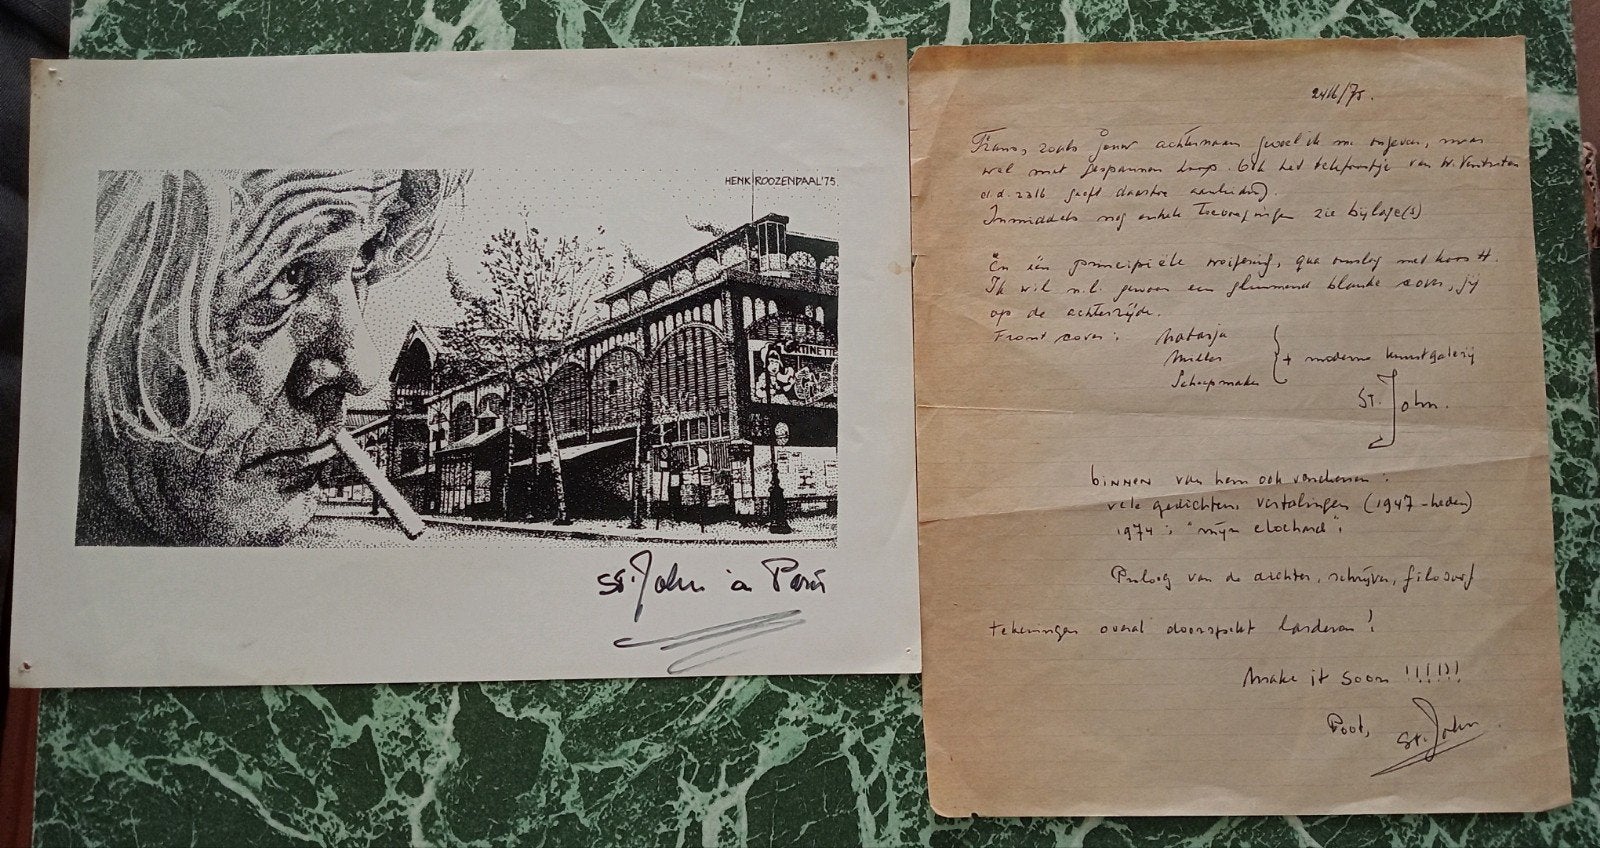 HENK ROOZENDAAL '75.
TINETTE
St. John à Paris
24/6/75.
Frans, zoals jouw achternaam
wel met gespannen Ook het telefoontje van W.
d.d. 23/6 geeft daartoe aanleiding.
Inmiddels nog enkele toevoegingen zie bijlage(s)
Èn één principiële weigering, qua omslag met Koos H.
Ik wil n.l. gewoon een glimmend blanke cover, jij
op de achterzijde.
Front cover: Natasja
Miller
Scheepmaker
+ moderne kunstgalerij
St. John.
binnen van hem ook verschenen:
vele gedichten, vertalingen (1947 - heden)
1974: "mijn clochard".
Proloog van de dichter, schrijver, filosoof
tekeningen overal doorspekt larderen!
Make it soon !!!!!!!
Poot,
St. John